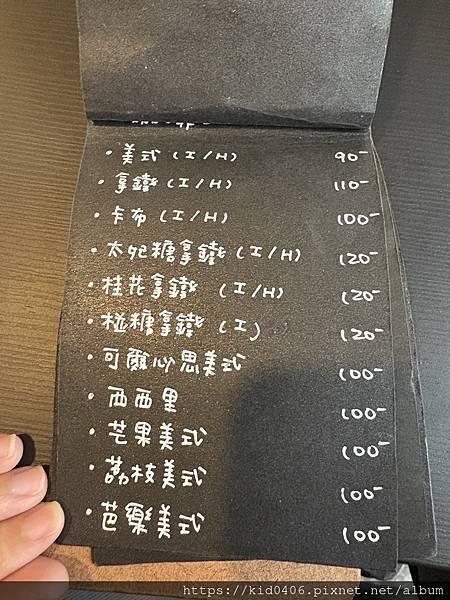 ・美式 (I/H) 90-
・拿鐵 (I/H) 110-
・卡布 (I/H) 100-
・太妃糖拿鐵 (I/H) 120-
・桂花拿鐵 (I/H) 120-
・椪糖拿鐵 (I) 120-
・可爾必思美式 100-
・西西里 100-
・芒果美式 100-
・荔枝美式 100-
・芭樂美式 100-
https://kid0406.pixnet.net/album